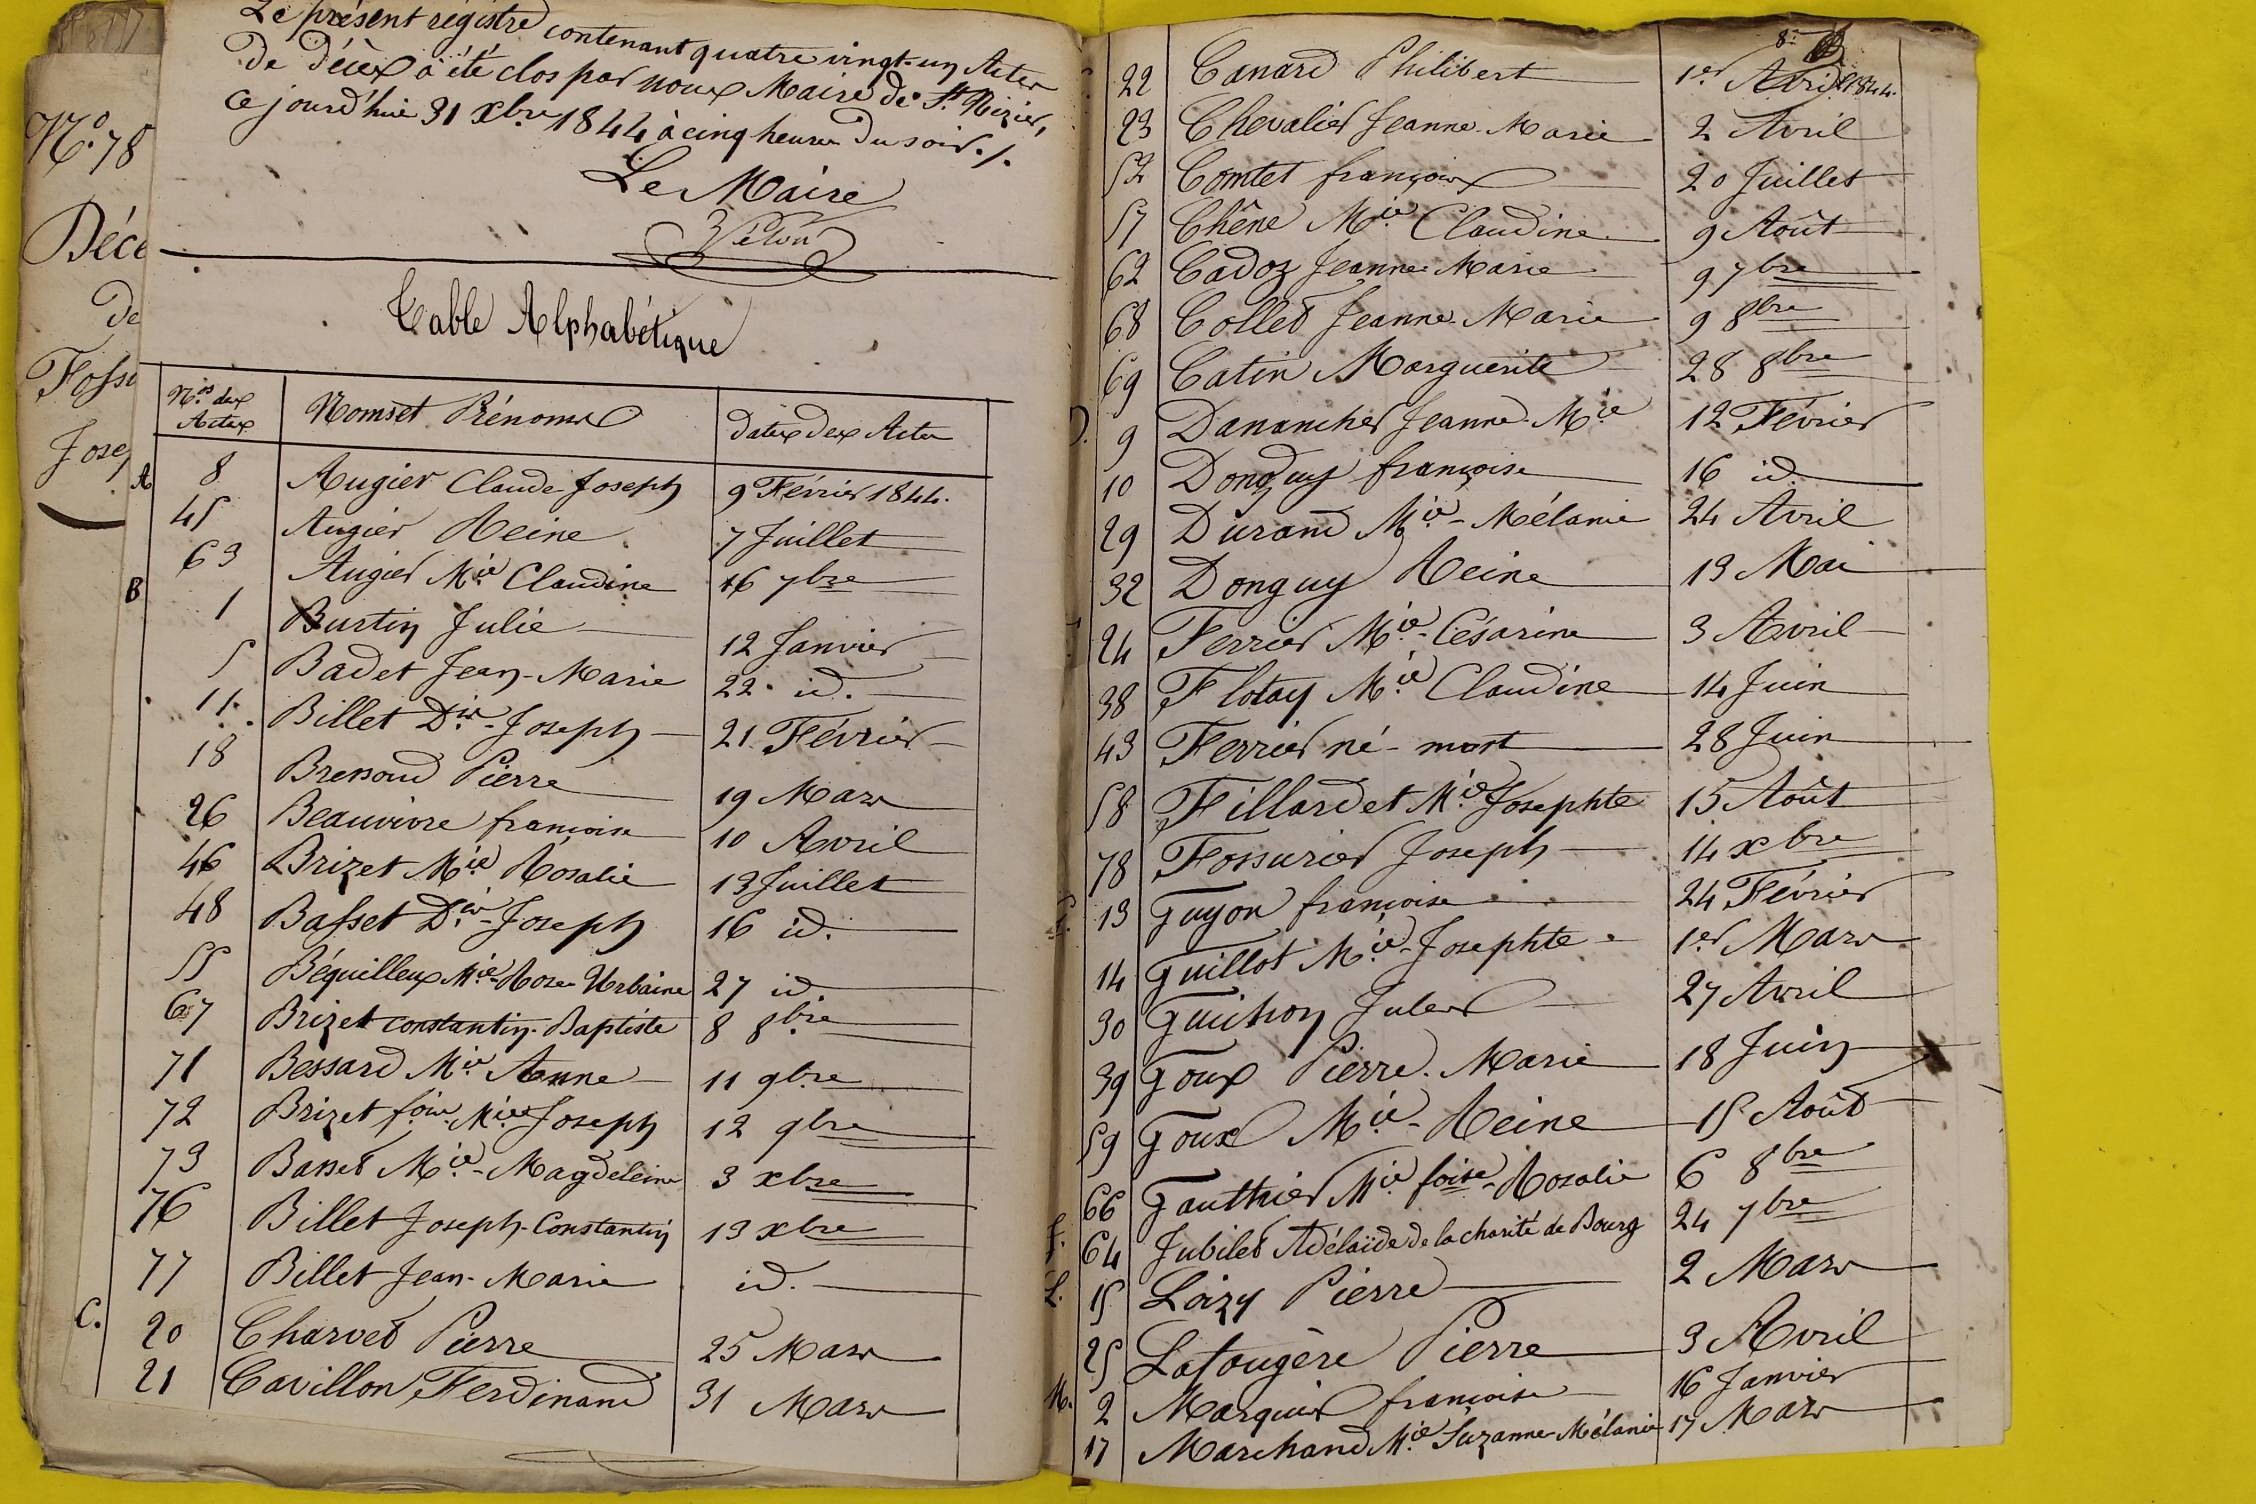 Le présent régistre contenant quatre vingt-un Actes
de décès a été clos par nous Maire de St Nizier,
ce jourd'hui 31 xbre 1844 à cinq heures du soir./.
Le Maire
N.° 78
Déce
de
Fosse
Jose
Table Alphabétique
N.os des Actes Noms et Prénoms Dates des Actes
A 8 Augier Claude Joseph 9 Février 1844.
45 Augier Reine 7 Juillet
63 Augier Mie Claudine 16 7bre
B 1 Burtin Julie 12 Janvier
5 Badet Jean-Marie 22 id.
11 Billet Dis-Joseph 21 Février
18 Bressoud Pierre 19 Mars
26 Beauvivre françoise 10 Avril
46 Brizet Mie Rosalie 13 Juillet
48 Basset Dis-Joseph 16 id.
55 Béquilleux Mie-Rose Urbaine 27 id.
67 Brizet Constantin-Baptiste 8 8bre
71 Bessard Mie Anne 11 9bre
72 Brizet fois-Mie Joseph 12 9bre
73 Basset Mie-Magdeleine 3 xbre
76 Billet Joseph-Constantin 13 xbre
77 Billet Jean-Marie id.
C. 20 Charvet Pierre 25 Mars
21 Cavillon Ferdinand 31 Mars
8e
22 Canard Philibert 1er Avril 1844.
23 Chevalier Jeanne-Marie 2 Avril
52 Comtet françois 20 Juillet
57 Chêne Mie Claudine 9 Août
62 Cadoz Jeanne-Marie 9 7bre
68 Collet Jeanne-Marie 9 8bre
69 Catin Marguerite 28 8bre
D. 9 Danancher Jeanne-Mie 12 Février
10 Donguy françoise 16 id.
29 Durand Mie-Mélanie 24 Avril
32 Donguy Reine 13 Mai
24 Ferrier Mie-Césarine 3 Avril
38 Flotay Mie Claudine 14 Juin
43 Ferrier né-mort 28 Juin
58 Fillardet Mie Josephte 15 Août
78 Fossurier Joseph 14 xbre
13 Guyon françoise 24 Février
14 Guillot Mie-Josephte 1er Mars
30 Guichon Jules 27 Avril
39 Goux Pierre-Marie 18 Juin
59 Goux Mie-Reine 15 Août
66 Gauthier Mie foise-Rosalie 6 8bre
J. 64 Jubilet Adélaïde de la charité de Bourg 24 7bre
L. 15 Loizy Pierre 2 Mars
25 Lafougère Pierre 3 Avril
M. 2 Marquis françoise 16 Janvier
17 Marchand Mie Suzanne-Mélanie 17 Mars